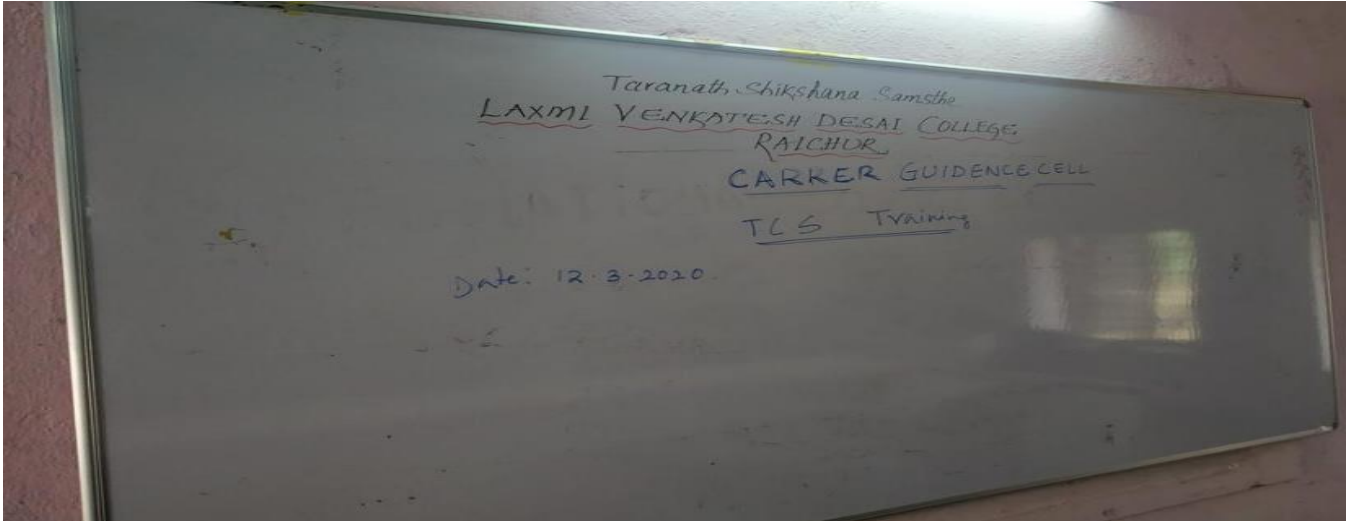 Taranath Shikshana Samsthe
LAXMI VENKATESH DESAI COLLEGE
RAICHUR
CARRER GUIDENCE CELL
TCS Training
Date: 12.3.2020